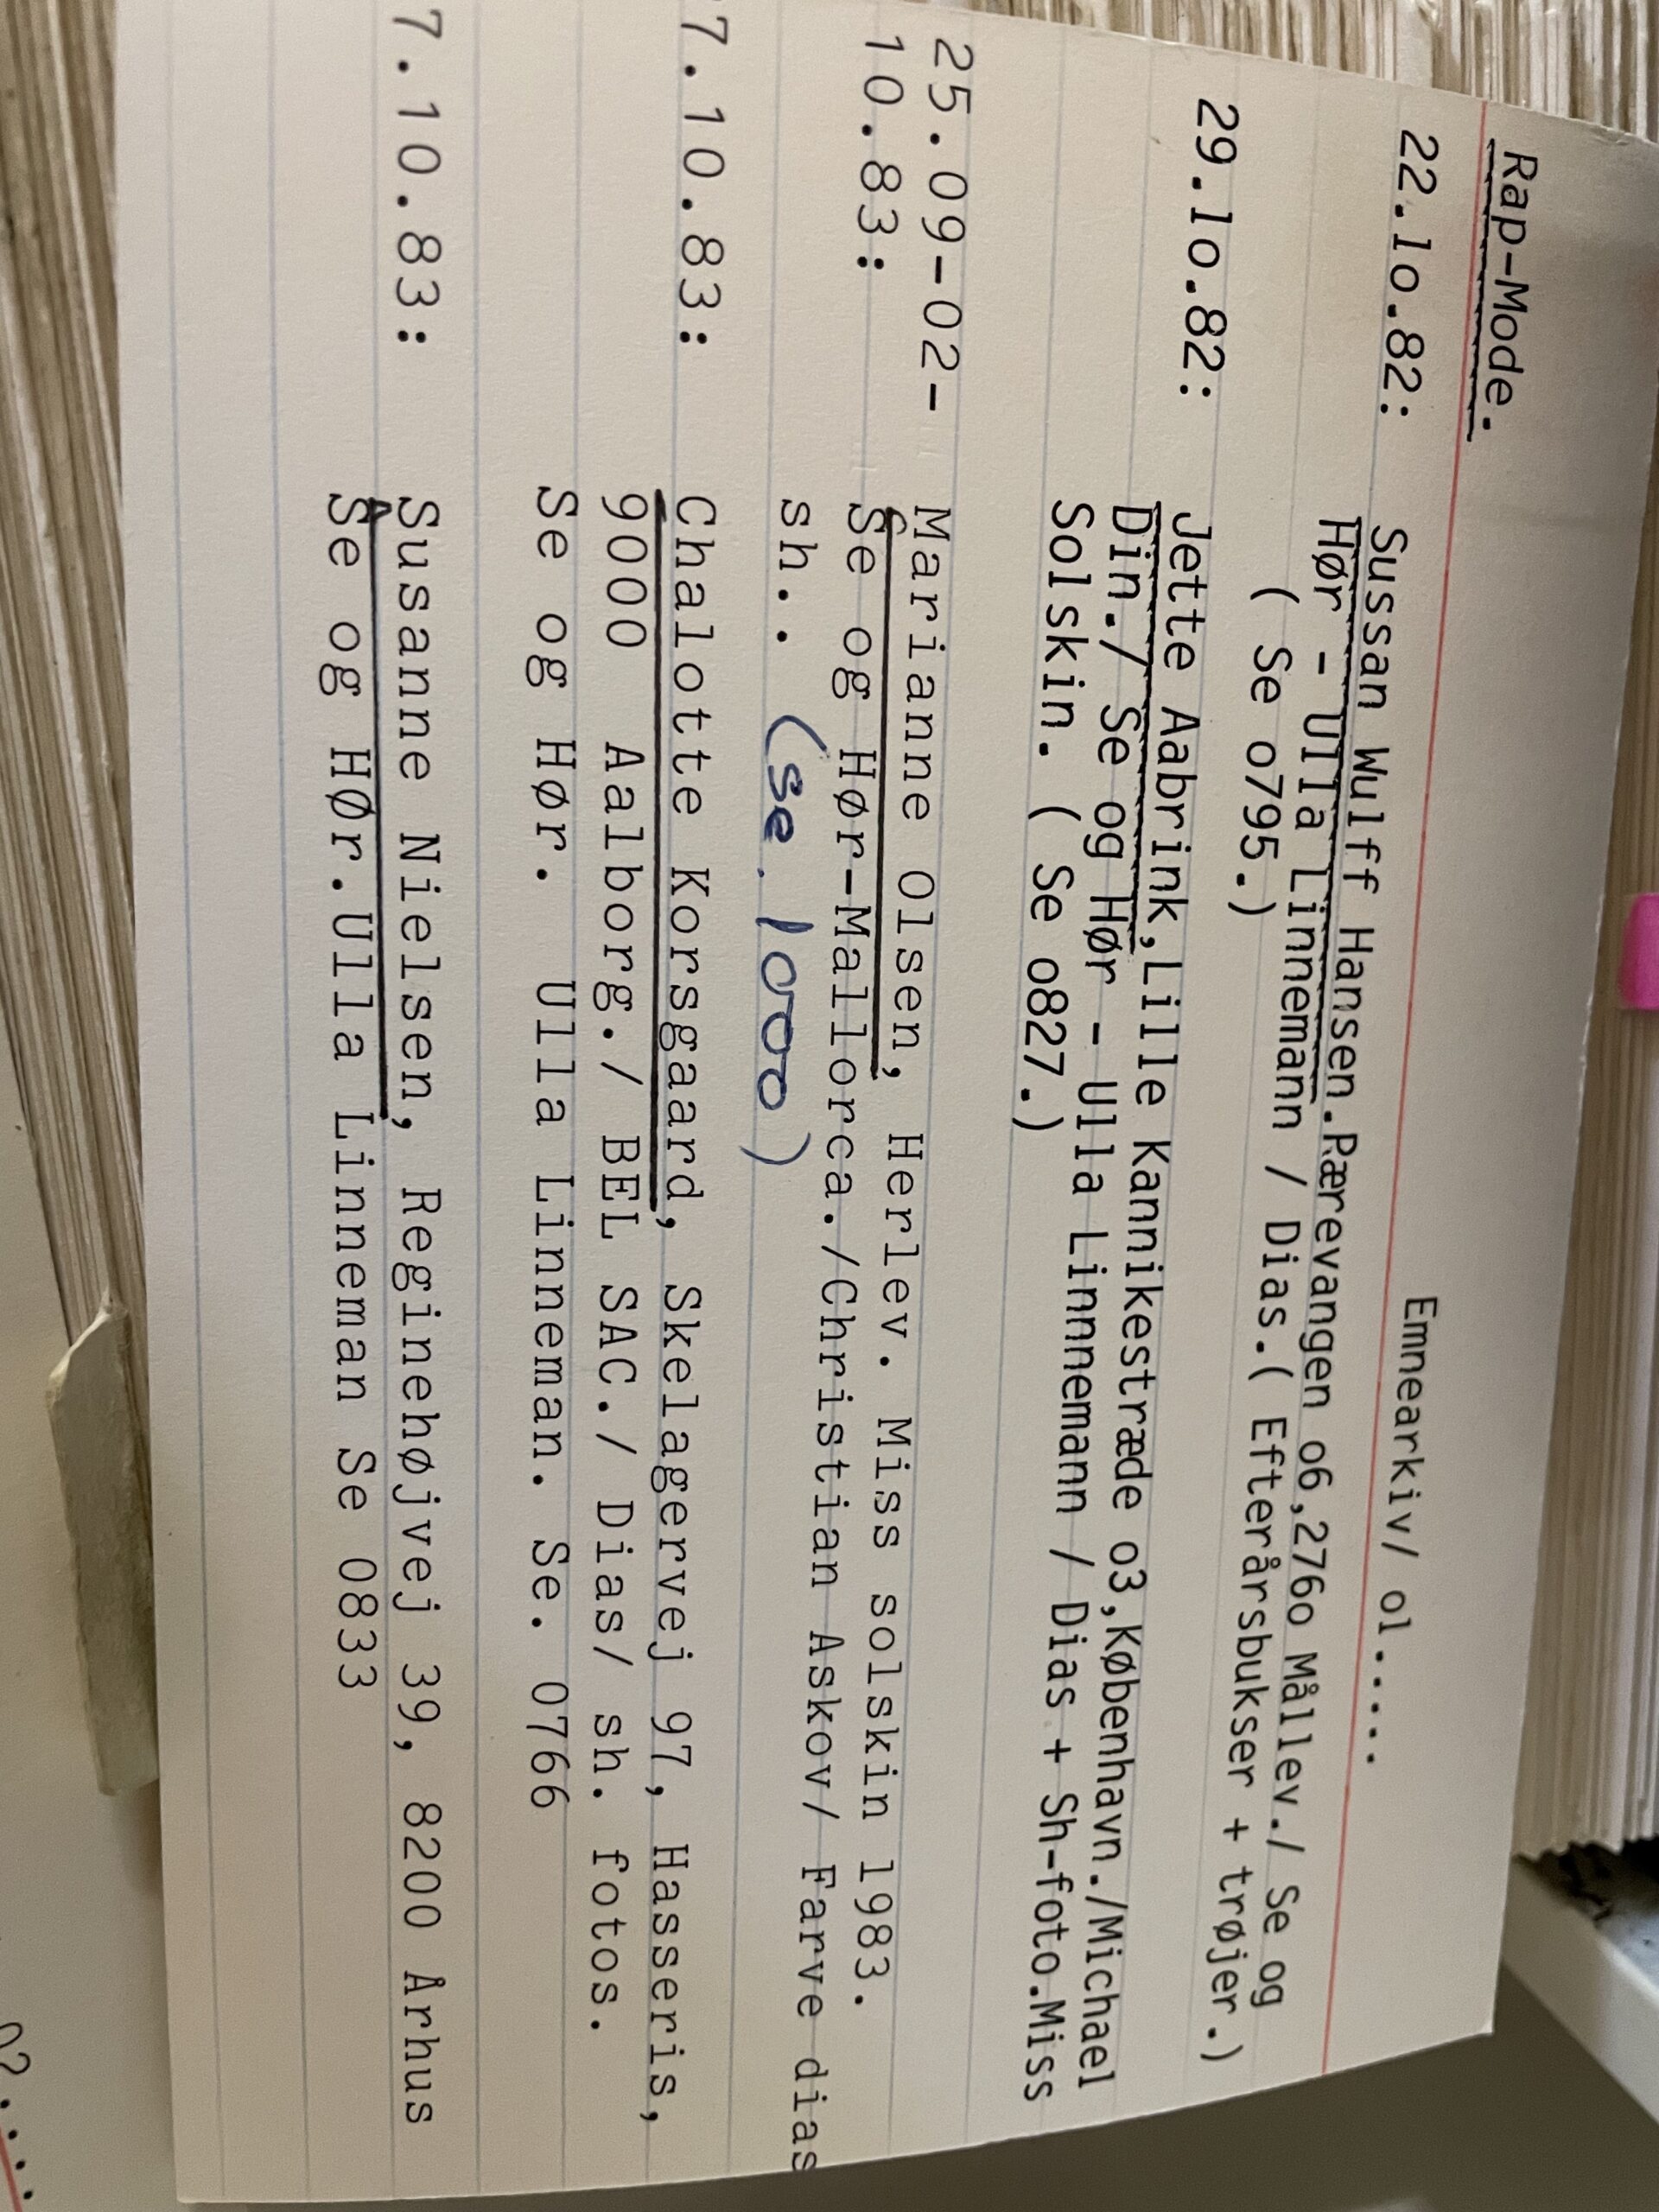 Rap-Mode.
Emnearkiv/ ol.....
22.lo.82: Sussan Wulff Hansen.Pærevangen o6,276o Mållev./ Se og
Hør - Ulla Linnemann / Dias.( Efterårsbukser + trøjer.)
( Se o795.)
29.lo.82: Jette Aabrink,Lille Kannikestræde o3,København./Michael
Din./ Se og Hør - Ulla Linnnemann / Dias + Sh-foto.Miss
Solskin. ( Se o827.)
25.09-02- Marianne Olsen, Herlev. Miss solskin 1983.
10.83: Se og Hør-Mallorca./Christian Askov/ Farve dias
sh.. (se. 1000)
7.10.83: Chalotte Korsgaard, Skelagervej 97, Hasseris,
9000 Aalborg./ BEL SAC./ Dias/ sh. fotos.
Se og Hør. Ulla Linneman. Se. 0766
7.10.83: Susanne Nielsen, Reginehøjvej 39, 8200 Århus
Se og HØr.Ulla Linneman Se 0833